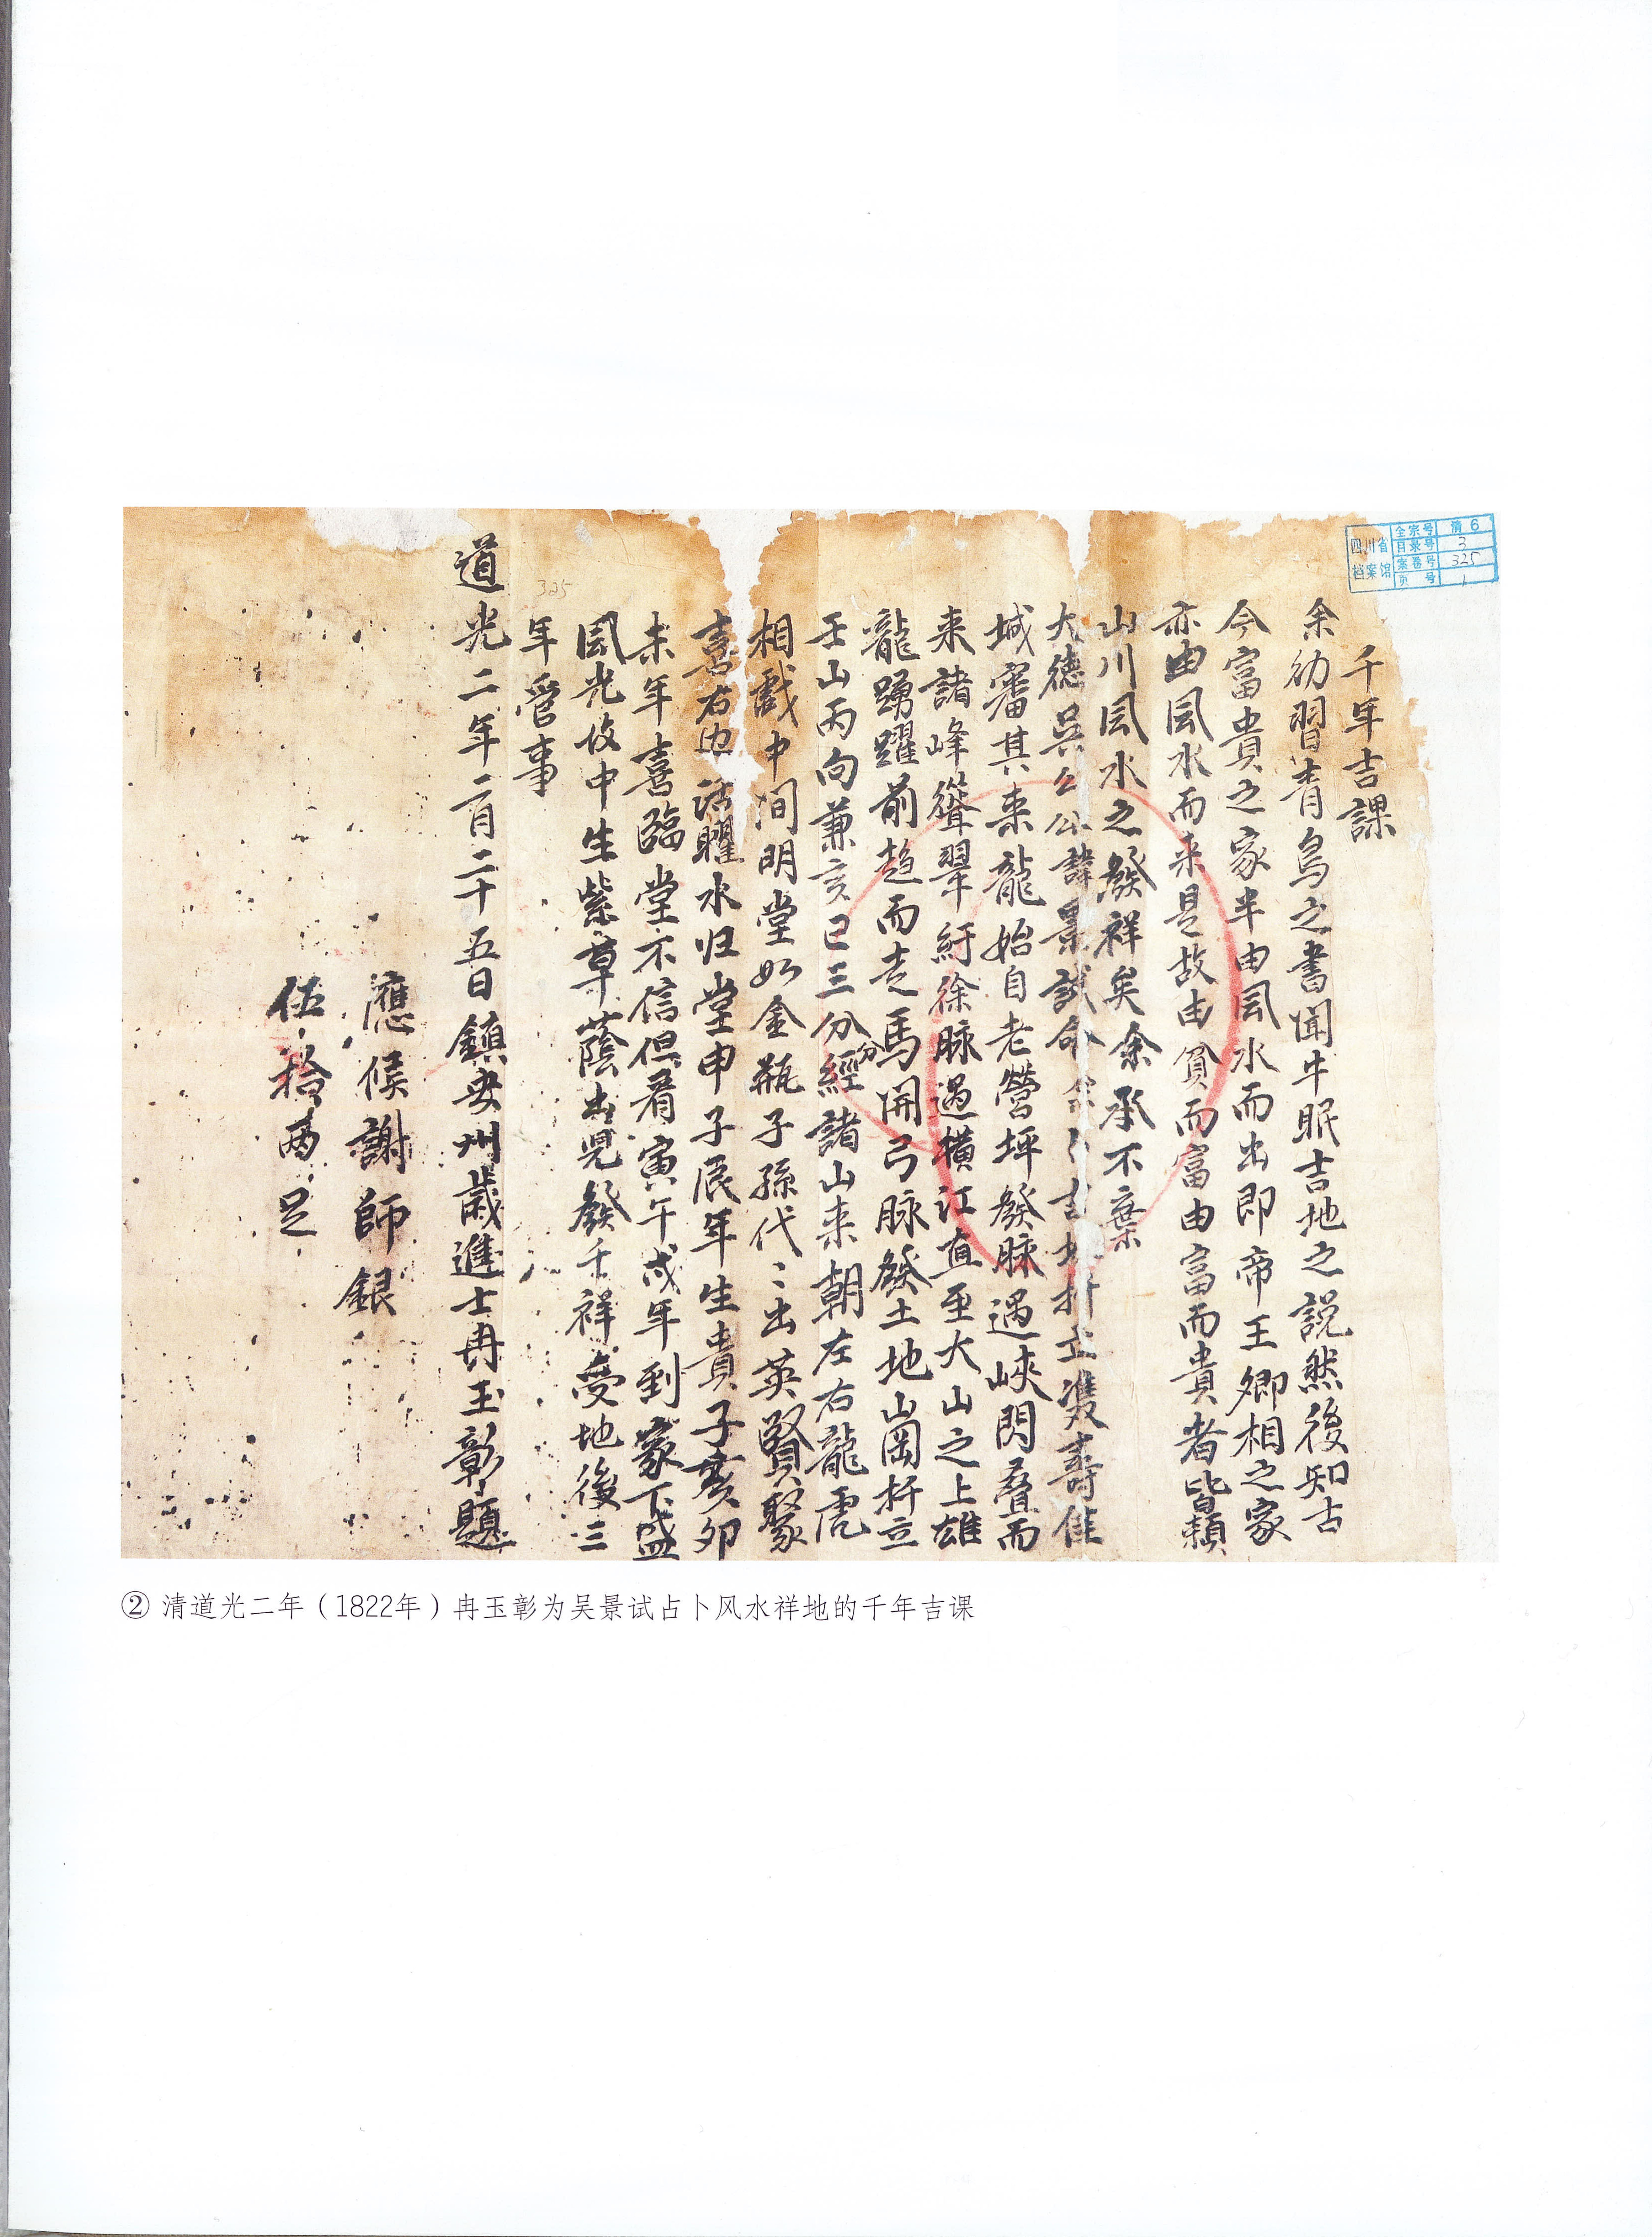 四川省档案馆
全宗号 清6
目录号 3
案卷号 325
页号 1
千年吉課
余幼習青烏之書聞牛眠吉地之説然後知古
今富貴之家半由風水而出即帝王卿相之家
亦由風水而来是故由貧而富由富而貴者皆賴
山川風水之發祥矣余承不棄
大德吳公公諱景試命余吉扦立雙壽佳
城審其来龍始自老營坪發脉遇峽閃叠而
来諸峰聳翠紆徐脉過横江直至大山之上雄
龍踴躍前趋而走馬開弓脉發土地崗扦立
壬山丙向兼亥巳三分分經諸山来朝左右龍虎
相戲中间明堂如金瓶子孫代〻出英賢聚
喜右边活曜水归堂申子辰年生貴子亥卯
未年喜臨堂不信但看寅午戌年到冢下盛
風光彼中生紫草蔭出児發千祥受地後三
年管事
325
道光二年二月二十五日鎮安州歲進士冉玉彰題
應候謝師銀
伍拾两足
② 清道光二年（1822年）冉玉彰为吴景试占卜风水祥地的千年吉课